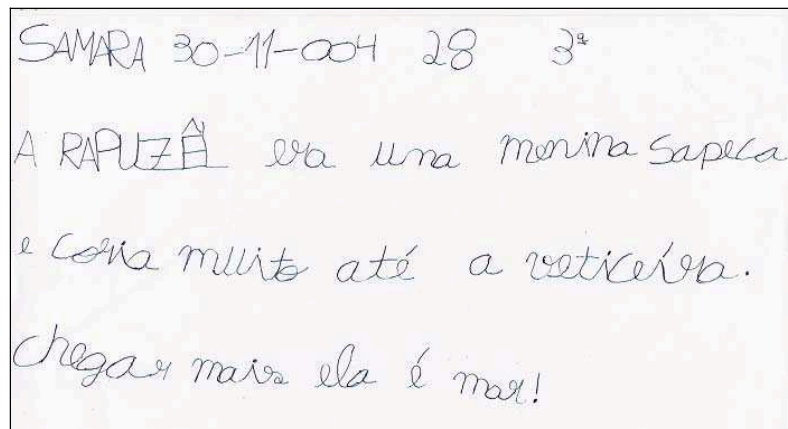 SAMARA 30-11-004 28 3ª
A RAPUZÊ era uma menina sapeca
e coria muito até a veticeira.
chegar mais ela é mar!